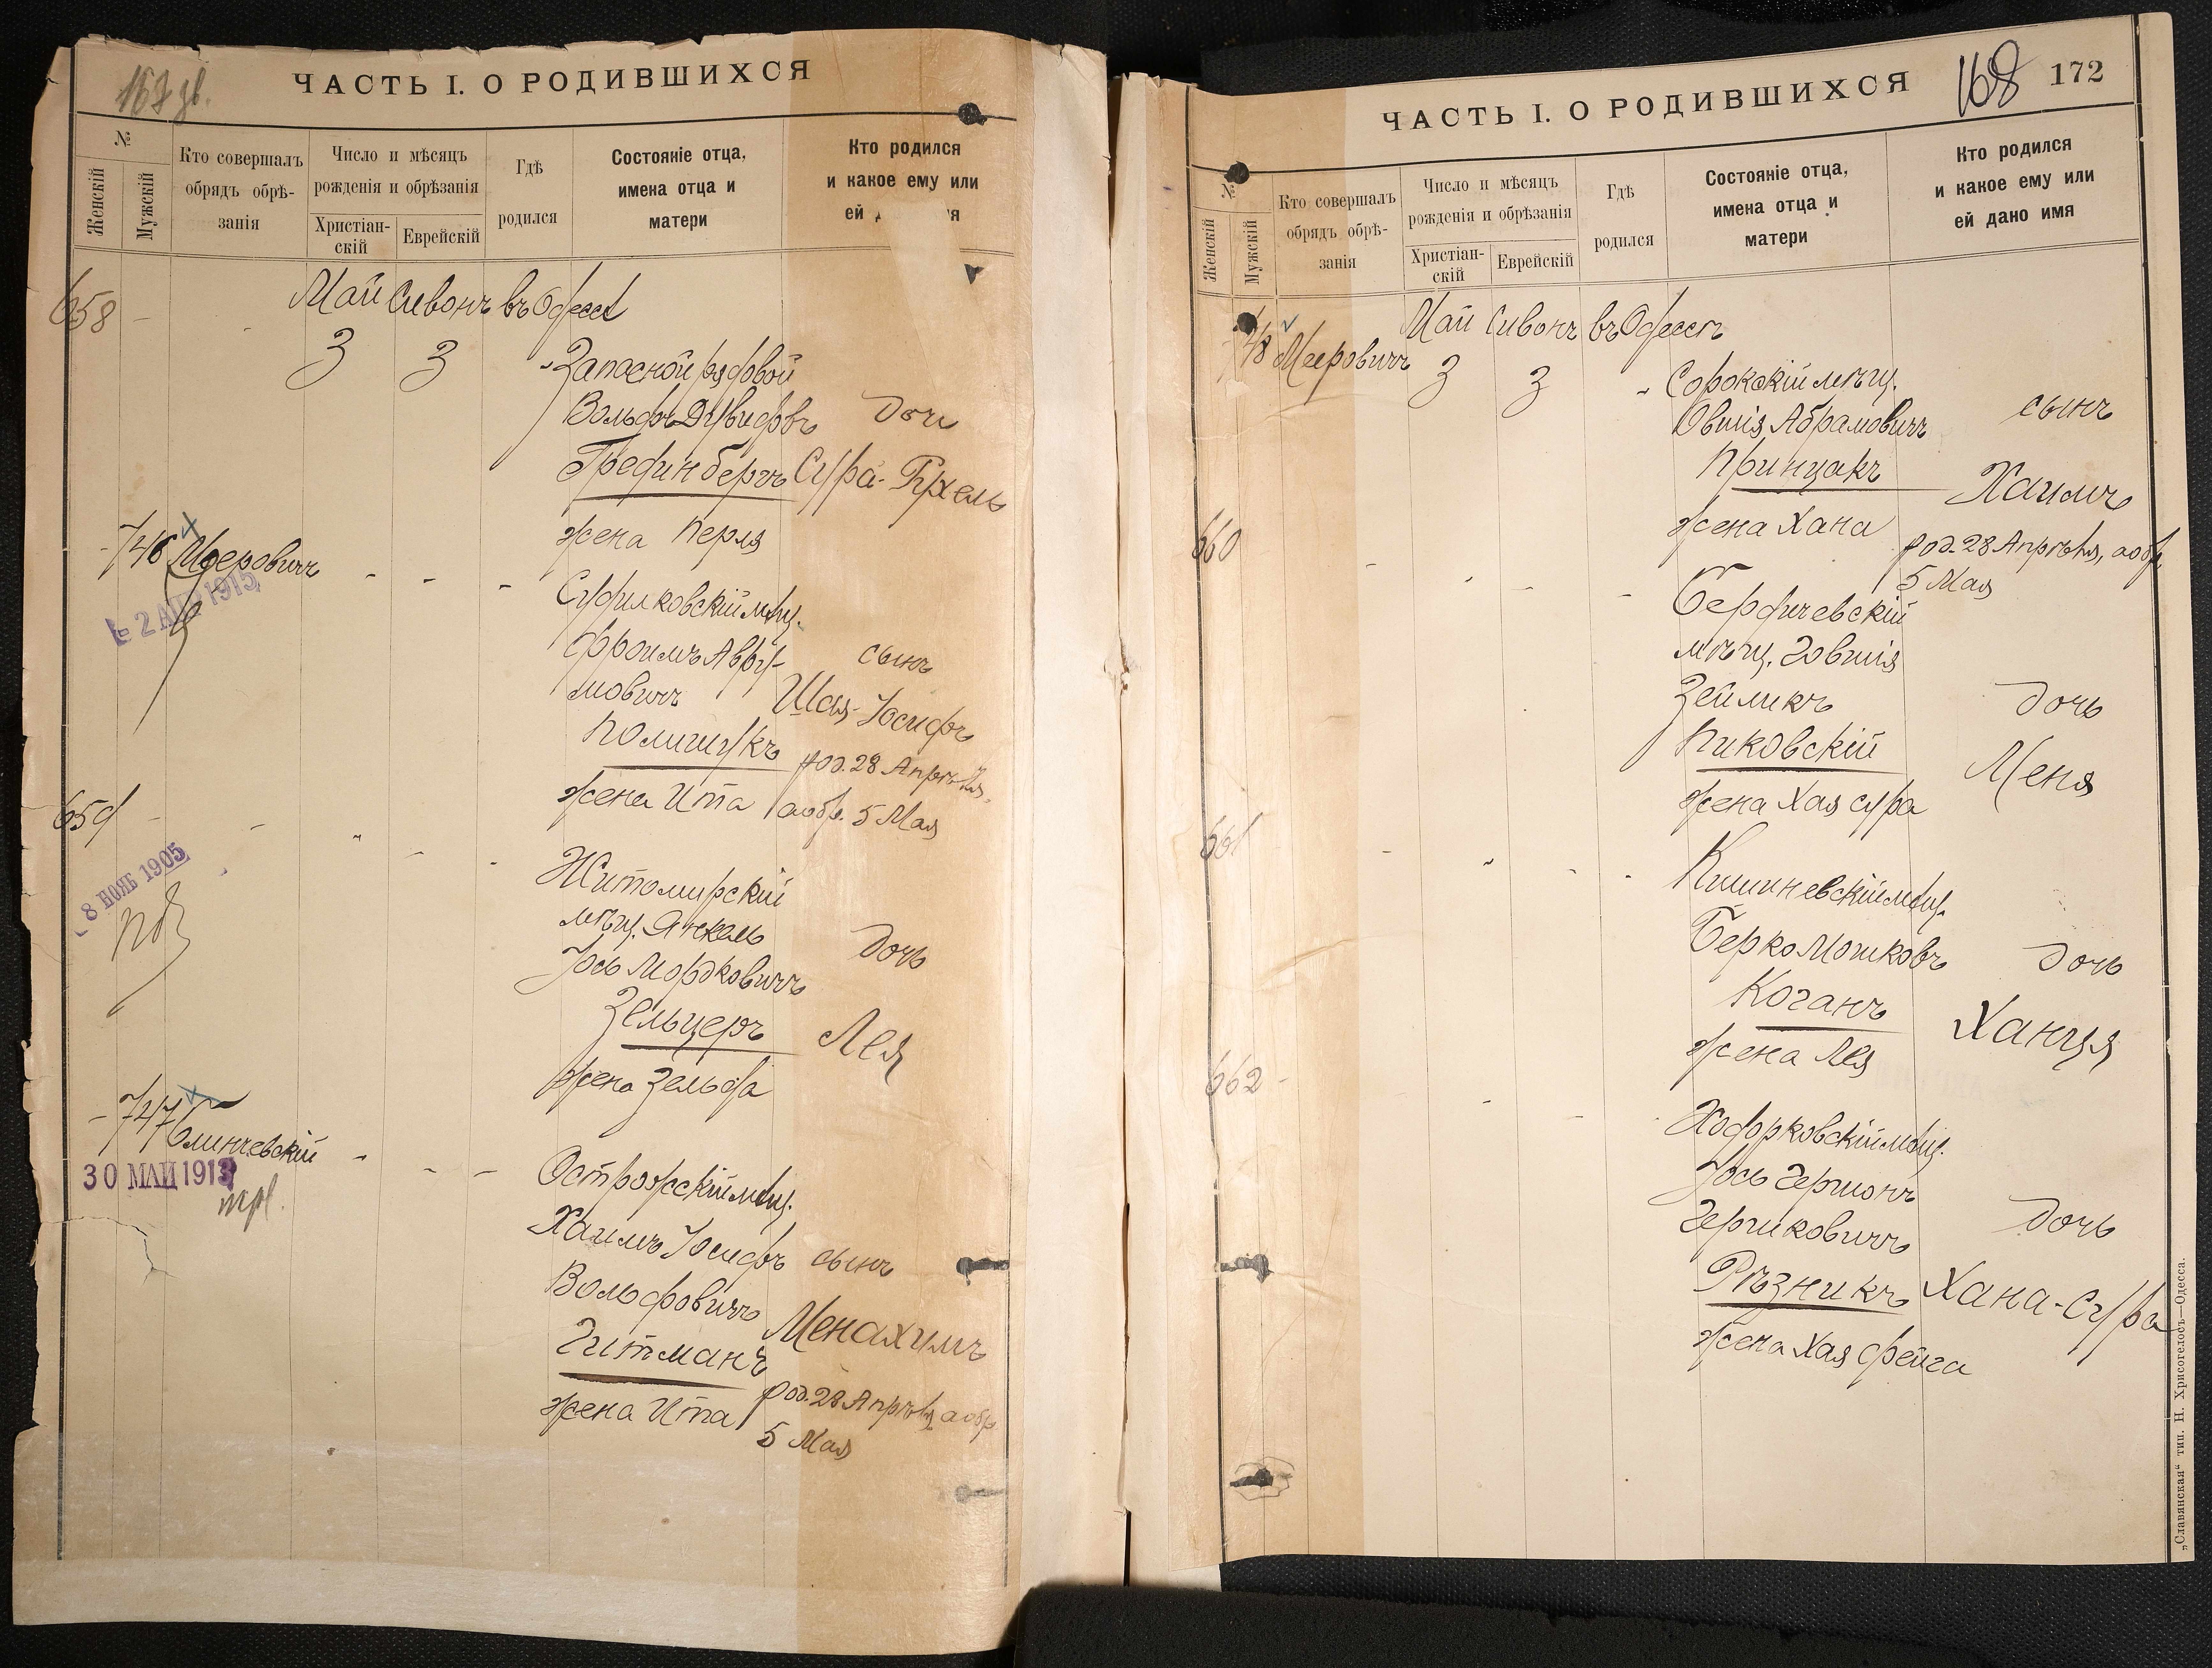 ЧАСТЬ I. О РОДИВШИХСЯ
№
Женскій
Мужскій
Кто совершалъ
обрядъ обрѣ-
занія
Число и мѣсяцъ
рожденія и обрѣзанія
Христіан-
скій
Еврейскій
Гдѣ
родился
Состояніе отца,
имена отца и
матери
Кто родился
и какое ему или
ей
658
Май Сивонъ въ Одессѣ
3 3
Запасной рядовой
Вольфъ Дувидовъ
дочь
Грединбергъ
Сура-Рухель
жена Перля
746 Мееровичъ
2 АПР 1915
Судилковскій мѣщ.
Фроимъ Авру-
мовичъ
сынъ
Шая-Іосифъ
Полищукъ
род. 28 Апрѣля,
жена Ита
а обр. 5 Мая
659
8 НОЯБ 1905
Житомирскій
мѣщ. Янкель
Іось Мордковичъ
дочь
Зельцеръ
Лея
жена Зельда
747 Блинчевскій
30 МАЙ 1913
Острожскій мѣщ.
Хаимъ Іосифъ
сынъ
Вольфовичъ
Менахимъ
Гитманъ
род. 28 Апрѣля, а обр.
жена Ита
5 Мая
ЧАСТЬ I. О РОДИВШИХСЯ
168
172
№
Женскій
Мужскій
Кто совершалъ
обрядъ обрѣ-
занія
Число и мѣсяцъ
рожденія и обрѣзанія
Христіан-
скій
Еврейскій
Гдѣ
родился
Состояніе отца,
имена отца и
матери
Кто родился
и какое ему или
ей дано имя
Май Сивонъ въ Одессѣ
748 Мееровичъ
3 3
Сорокскій мѣщ.
Овшія Абрамовичъ
сынъ
Принцакъ
Хаимъ
жена Хана
род. 28 Апрѣля, а обр.
5 Мая
660
Бердичевскій
мѣщ. Говшія
Зейликъ
дочь
Пиковскій
Меня
жена Хая Сура
661
Кишиневскій мѣщ.
Берко Мошковъ
дочь
Коганъ
Ханця
жена Лея
662
Ходорковскій мѣщ.
Іось Гершонъ
Гершковичъ
дочь
Рѣзникъ
Хана-Сура
жена Хая Фейга
„Славянская“ тип. Н. Хрисогелосъ—Одесса.